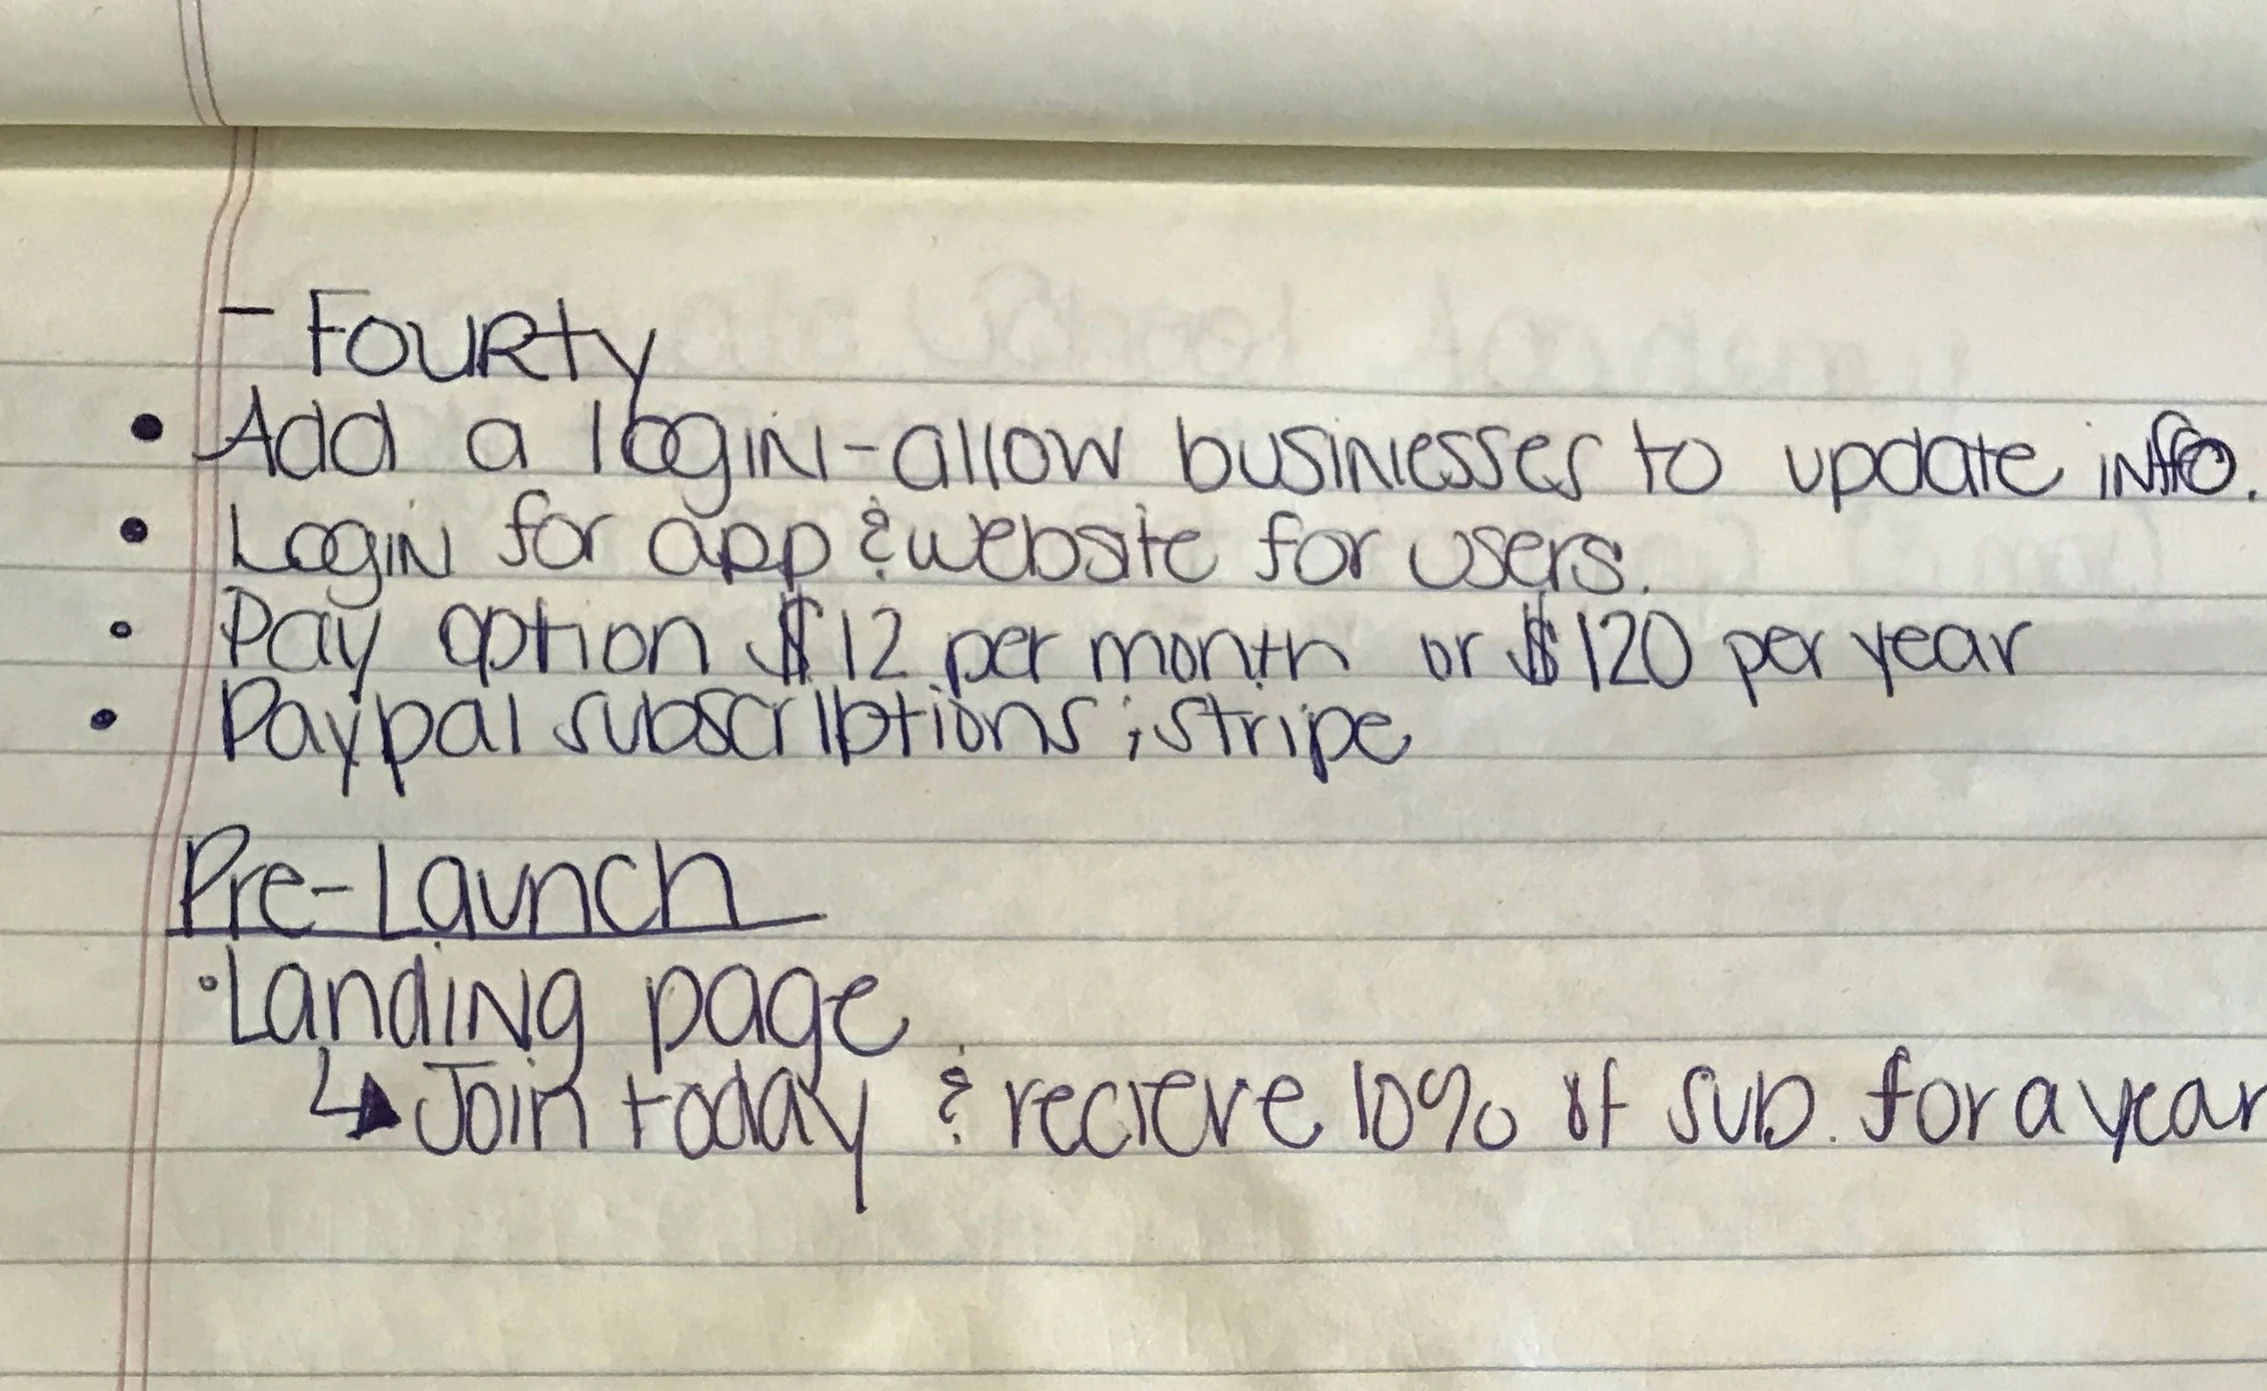 - Fourty
• Add a login - allow businesses to update info.
• Login for app & website for users.
• Pay option $12 per month or $120 per year
• Paypal subscriptions; stripe
Pre-Launch
• Landing page
↳ Join today & recieve 10% of sub. for a year